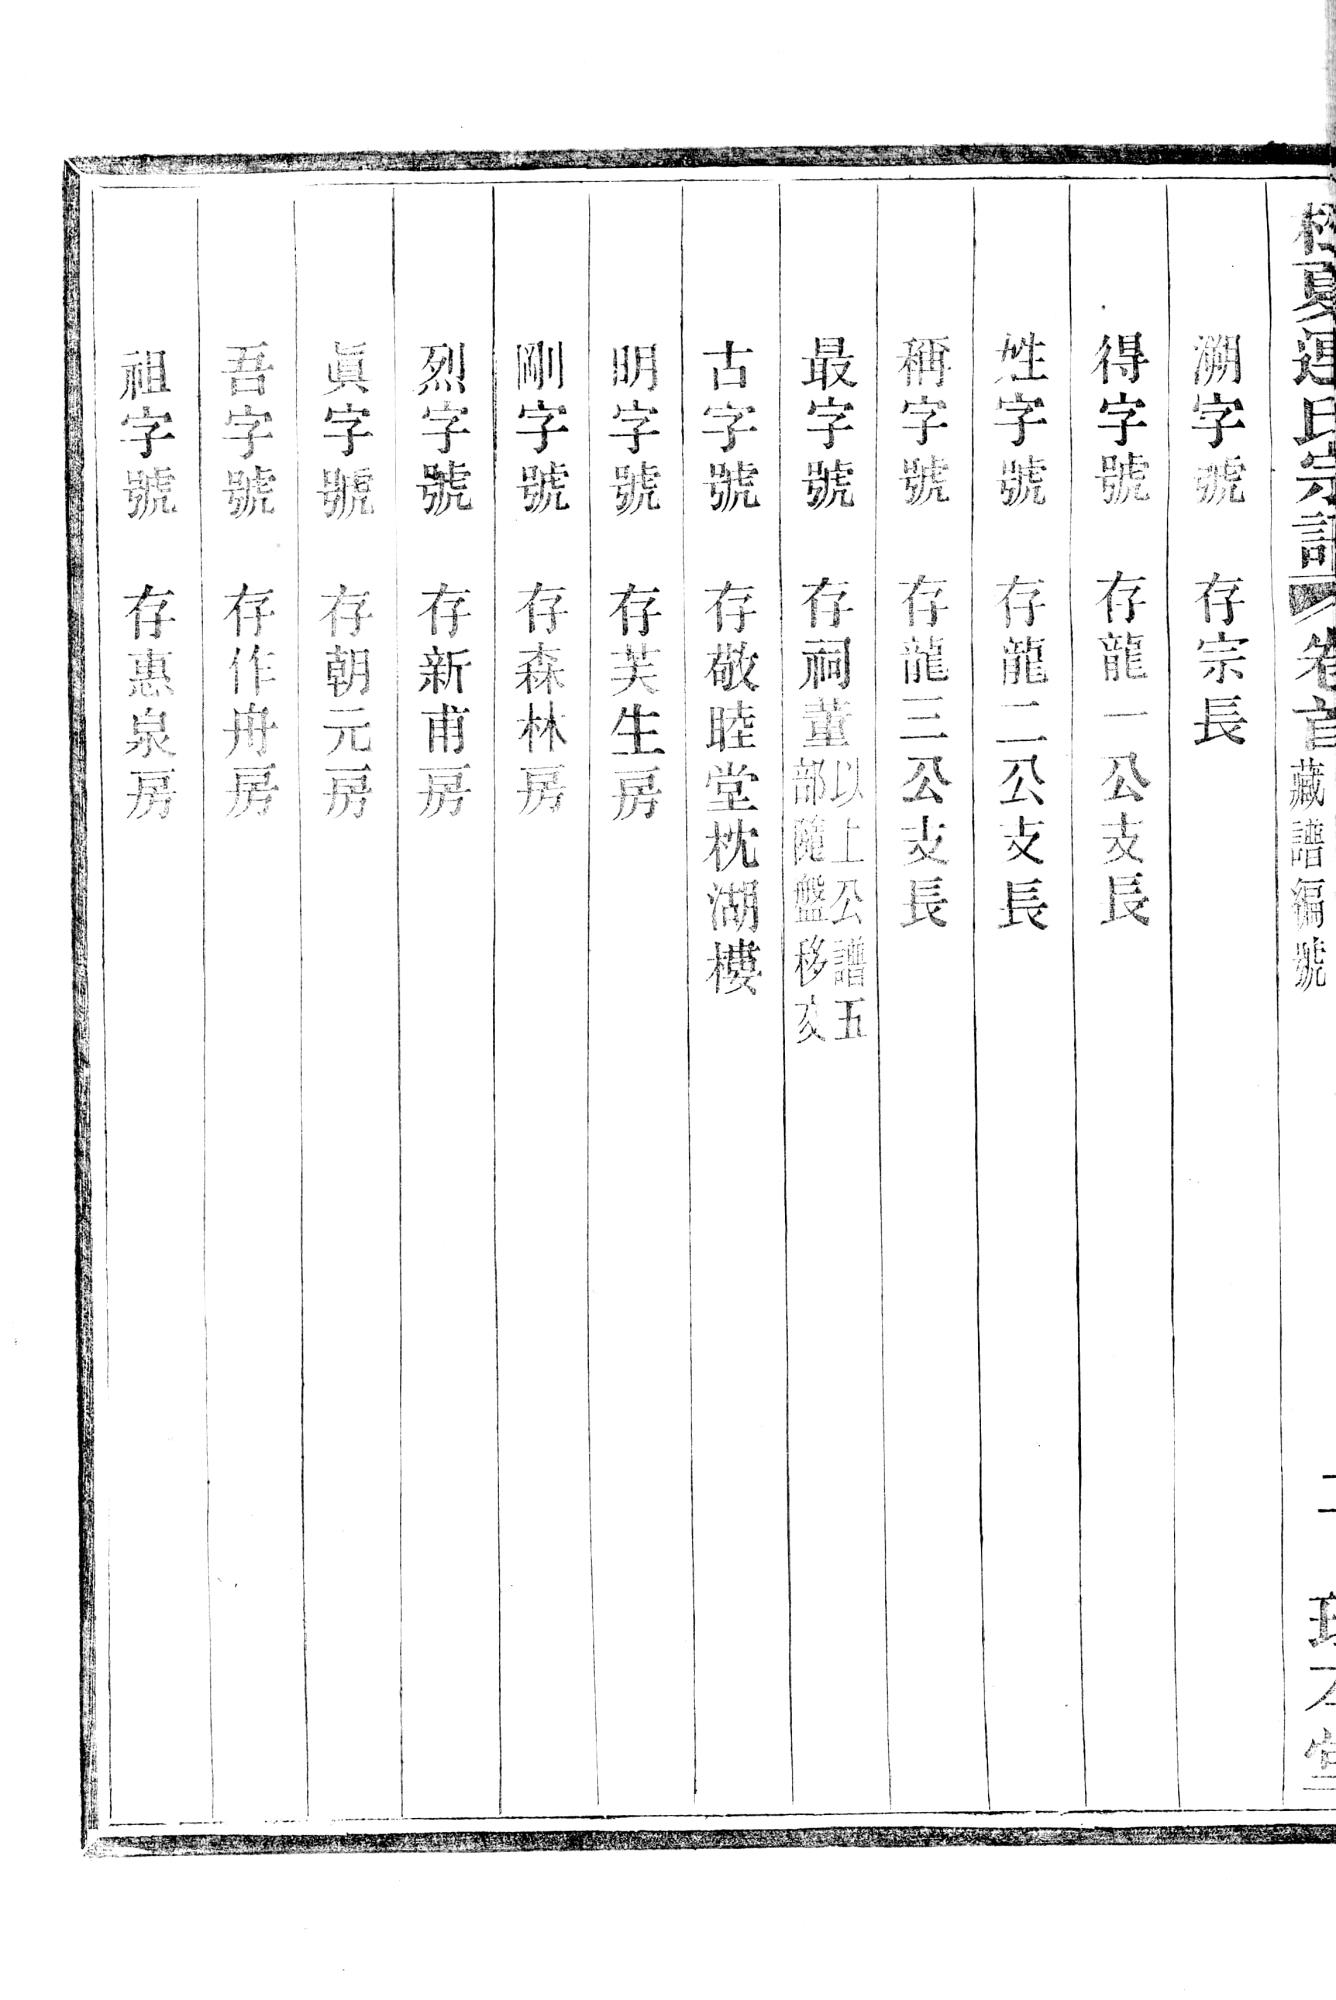 夏連氏宗譜 卷首 藏譜編號
溯字號 存宗長
得字號 存龍一公支長
姓字號 存龍二公支長
稱字號 存龍三公支長
最字號 存祠董 以上公譜五
部隨盤移交
古字號 存敬睦堂枕湖樓
明字號 存芙生房
剛字號 存森林房
烈字號 存新甫房
眞字號 存朝元房
吾字號 存作舟房
祖字號 存惠泉房